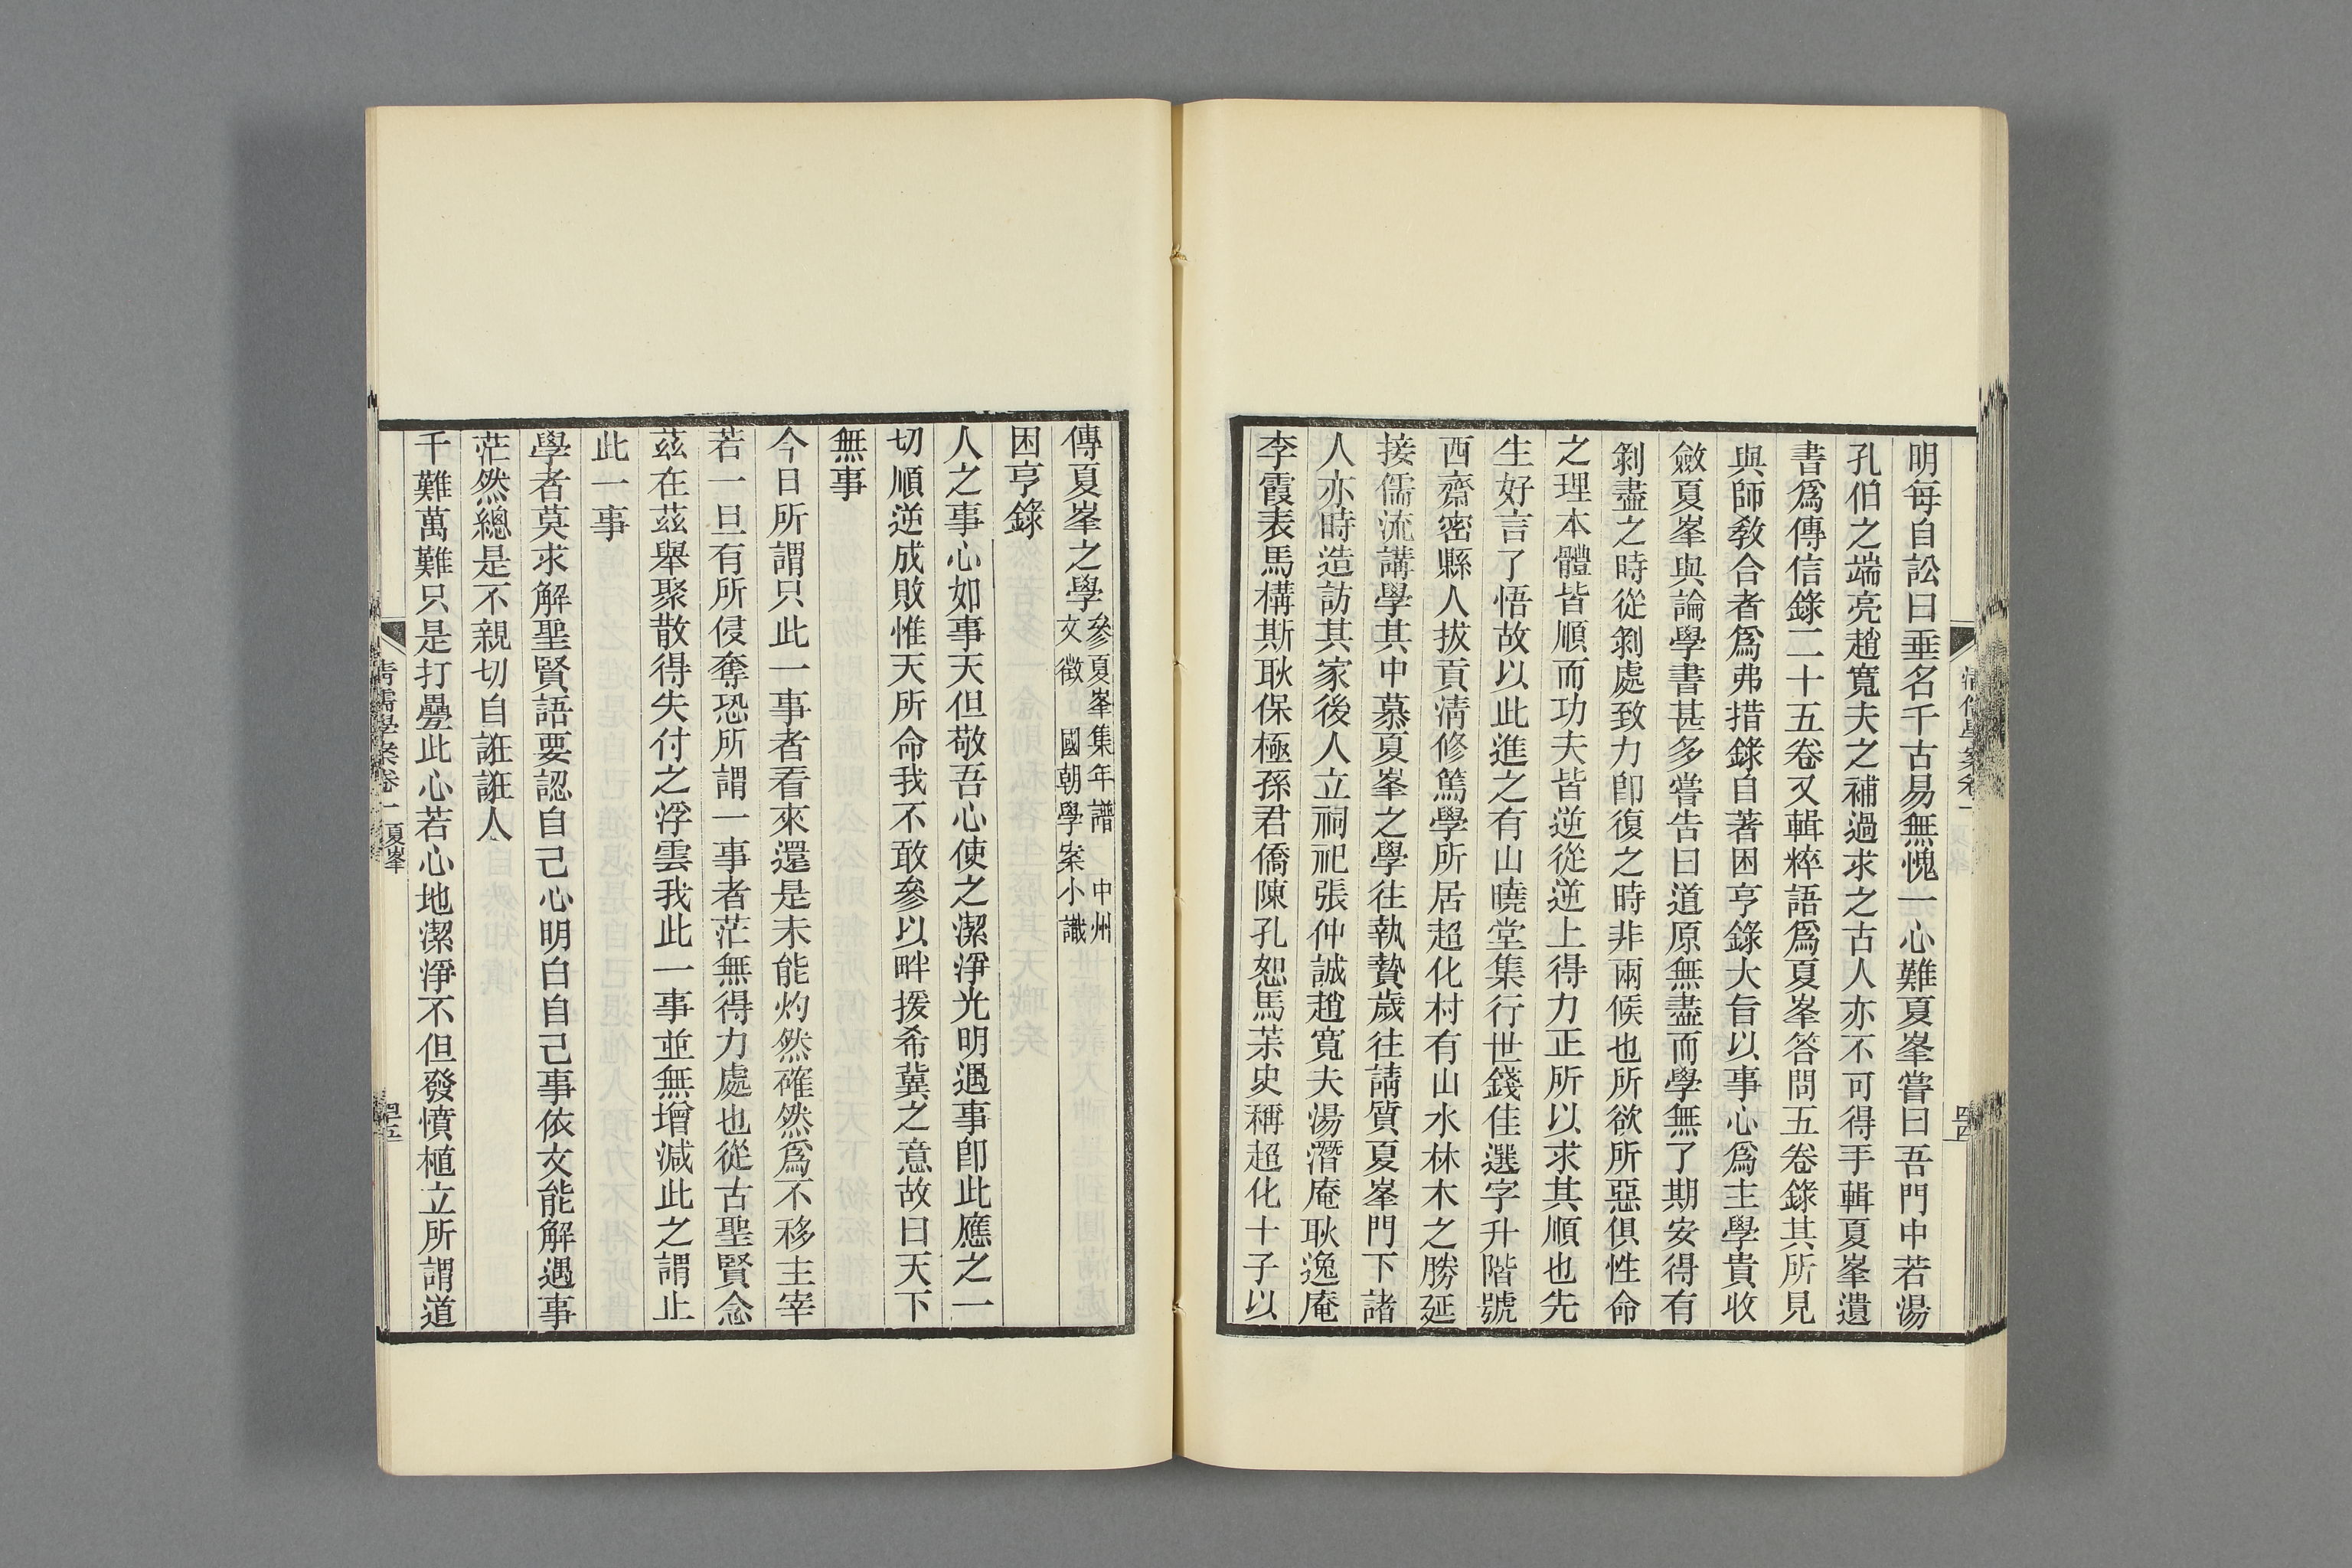 明每自訟曰垂名千古易無愧一心難夏峯嘗曰吾門中若湯
孔伯之端亮趙寬夫之補過求之古人亦不可得手輯夏峯遺
書爲傳信錄二十五卷又輯粹語爲夏峯答問五卷錄其所見
與師敎合者爲弗措錄自著困亨錄大旨以事心爲主學貴收
斂夏峯與論學書甚多嘗告曰道原無盡而學無了期安得有
剝盡之時從剝處致力卽復之時非兩候也所欲所惡俱性命
之理本體皆順而功夫皆逆從逆上得力正所以求其順也先
生好言了悟故以此進之有山曉堂集行世錢佳選字升階號
西齋密縣人拔貢淸修篤學所居超化村有山水林木之勝延
接儒流講學其中慕夏峯之學往執贄歲往請質夏峯門下諸
人亦時造訪其家後人立祠祀張仲誠趙寬夫湯潛庵耿逸庵
李霞表馬構斯耿保極孫君僑陳孔恕馬茮史稱超化十子以
傳夏峯之學
參夏峯集年譜 中州
文徵 國朝學案小識
困亨錄
人之事心如事天但敬吾心使之潔淨光明遇事卽此應之一
切順逆成敗惟天所命我不敢參以畔援希冀之意故曰天下
無事
今日所謂只此一事者看來還是未能灼然確然爲不移主宰
若一旦有所侵奪恐所謂一事者茫無得力處也從古聖賢念
茲在茲舉聚散得失付之浮雲我此一事並無增減此之謂止
此一事
學者莫求解聖賢語要認自己心明白自己事依文能解遇事
茫然總是不親切自誑誑人
千難萬難只是打疊此心若心地潔淨不但發憤植立所謂道
淸儒學案卷一 夏峯